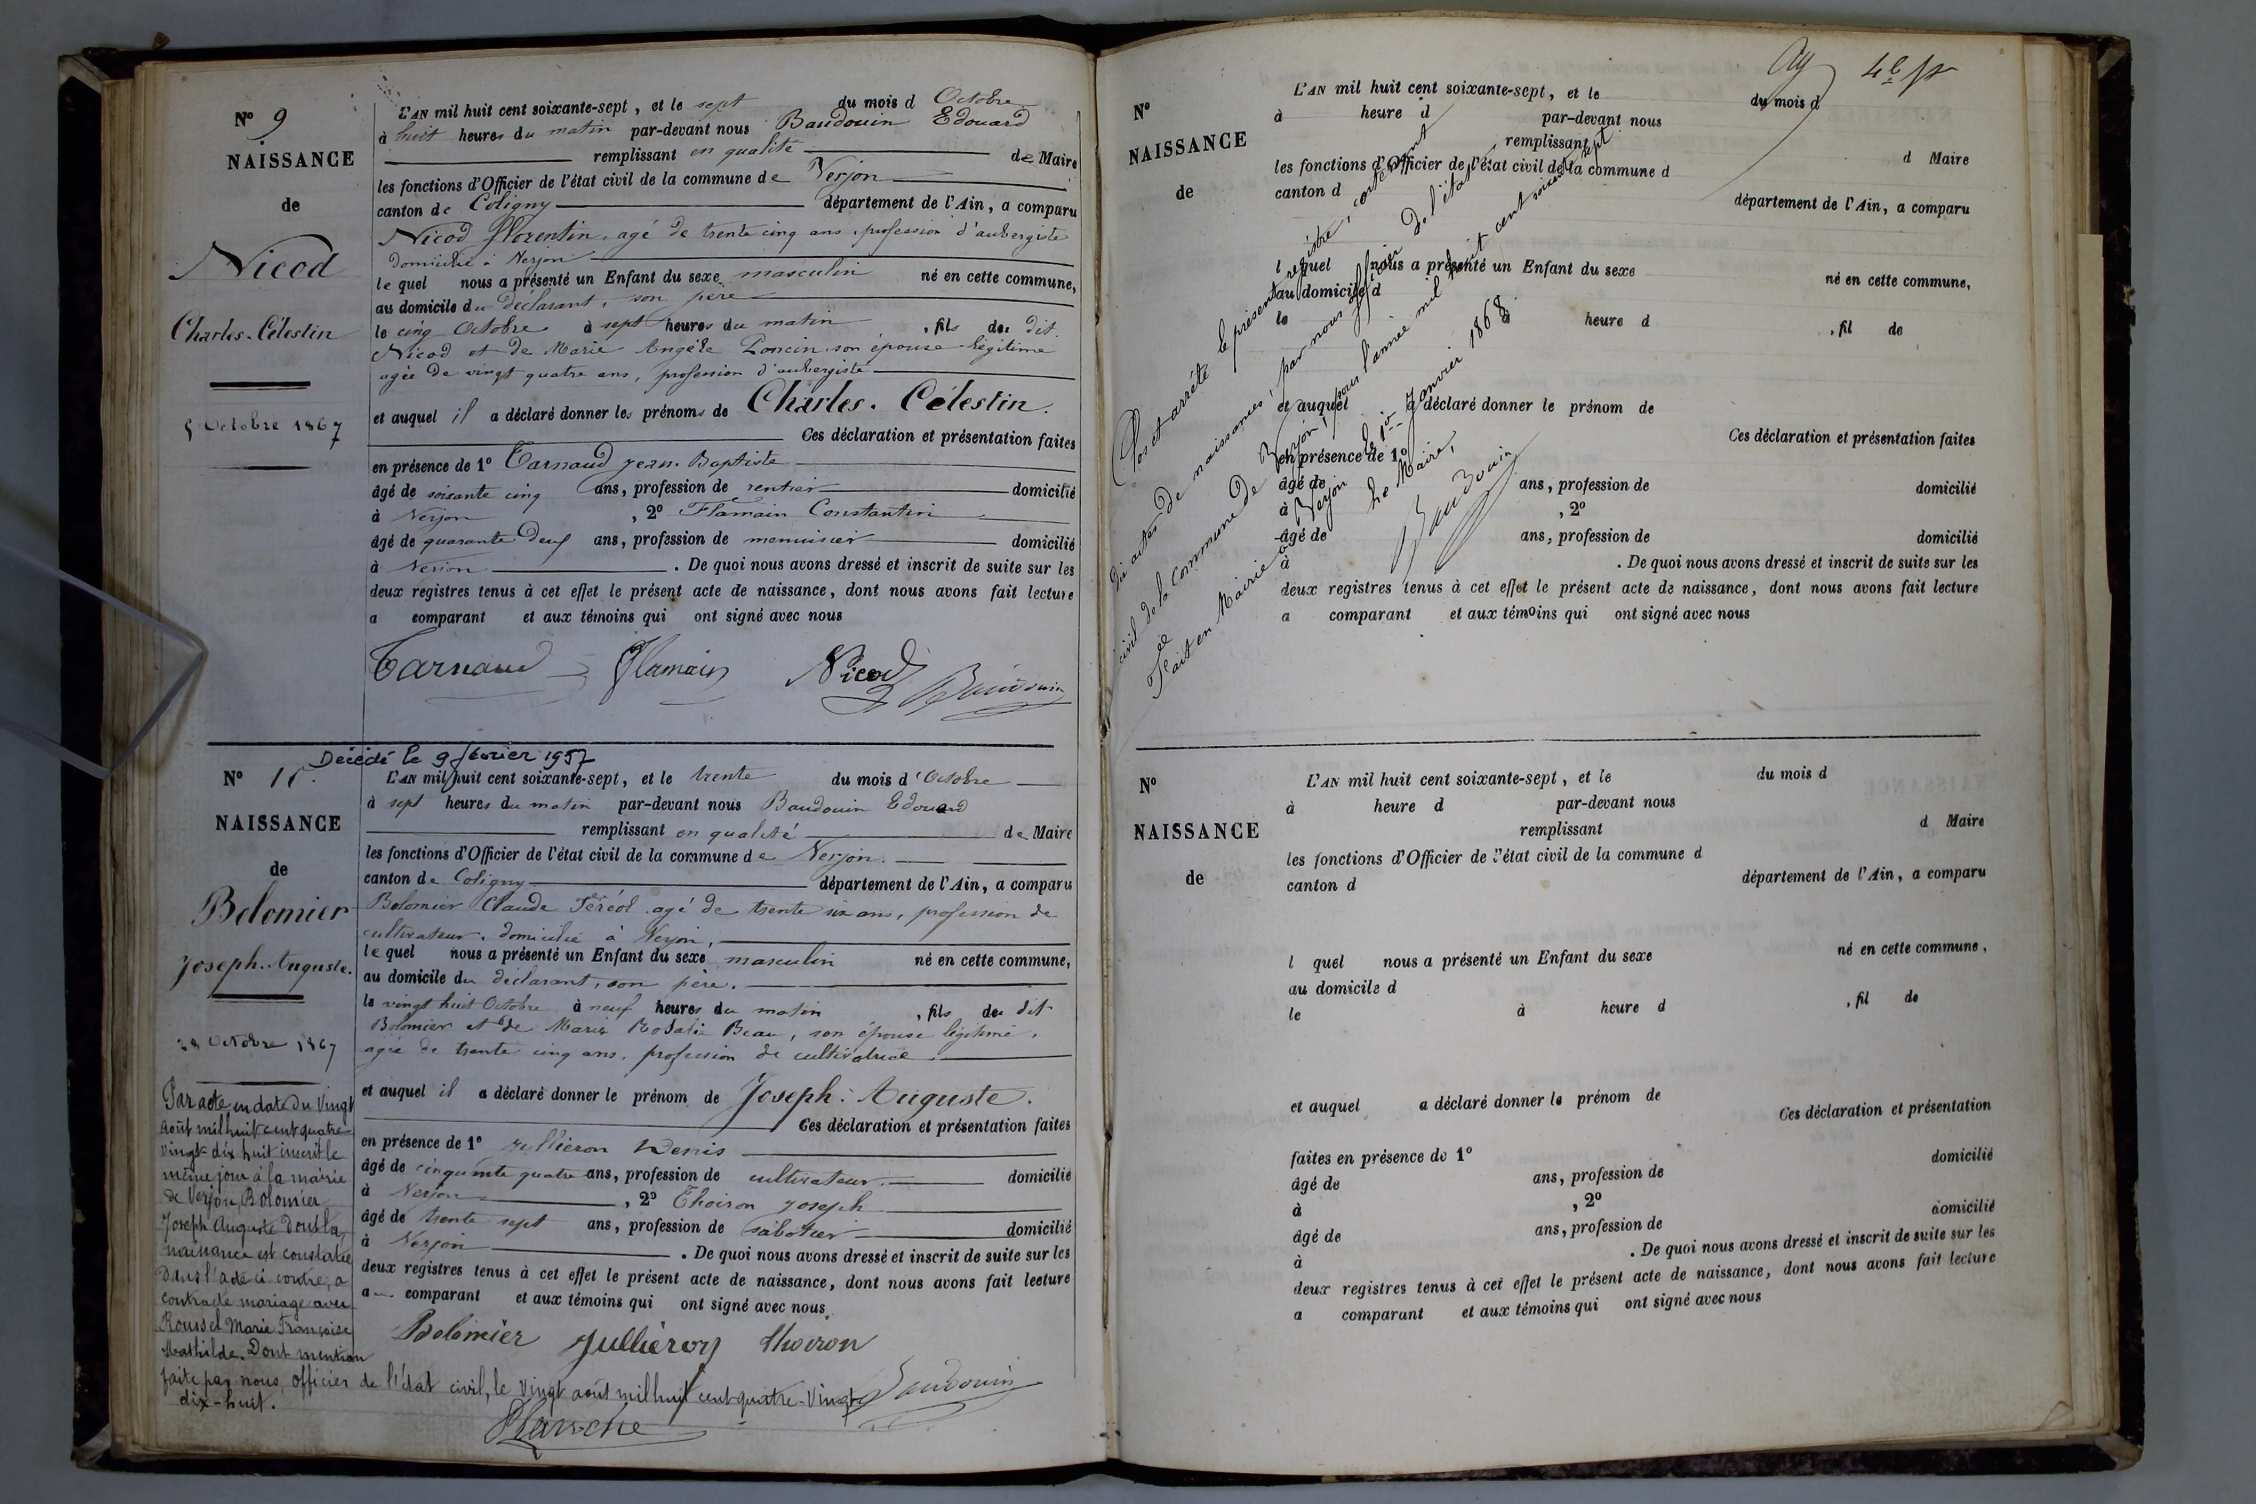 N° 9
NAISSANCE
de
Nicod
Charles-Célestin
5 Octobre 1867
L'AN mil huit cent soixante-sept, et le sept du mois d Octobre
à huit heures du matin par-devant nous Baudouin Edouard
remplissant en qualité de Maire
les fonctions d'Officier de l'état civil de la commune de Verjon
canton de Coligny département de l'Ain, a comparu
Nicod Florentin, agé de trente cinq ans, profession d'aubergiste
domicilié à Verjon
lequel nous a présenté un Enfant du sexe masculin né en cette commune,
au domicile du déclarant, son père
le cinq Octobre à sept heures du matin, fils du dit
Nicod et de Marie Angèle Poncin, son épouse légitime
agée de vingt quatre ans, profession d'aubergiste
et auquel il a déclaré donner les prénoms de Charles. Célestin.
Ces déclaration et présentation faites
en présence de 1° Tarnaud Jean-Baptiste
âgé de soixante cinq ans, profession de rentier domicilié
à Verjon, 2° Flamain Constantin
âgé de quarante deux ans, profession de menuisier domicilié
à Verjon. De quoi nous avons dressé et inscrit de suite sur les
deux registres tenus à cet effet le présent acte de naissance, dont nous avons fait lecture
a comparant et aux témoins qui ont signé avec nous
Tarnaud Flamain Nicod Baudouin
Décédé le 9 février 1957
N° 10.
NAISSANCE
de
Bolomier
Joseph-Auguste.
28 Octobre 1867
L'AN mil huit cent soixante-sept, et le trente du mois d'Octobre
à sept heures du matin par-devant nous Baudouin Edouard
remplissant en qualité de Maire
les fonctions d'Officier de l'état civil de la commune de Verjon.
canton de Coligny département de l'Ain, a comparu
Bolomier Claude Féréol agé de trente six ans, profession de
cultivateur, domicilié à Verjon,
lequel nous a présenté un Enfant du sexe masculin né en cette commune,
au domicile du déclarant, son père.
le vingt huit Octobre à neuf heures du matin, fils du dit
Bolomier et de Marie Rosalie Beau, son épouse légitime,
agée de trente cinq ans, profession de cultivatrice
et auquel il a déclaré donner le prénom de Joseph. Auguste.
Ces déclaration et présentation faites
en présence de 1° Jullieron Denis
âgé de cinquante quatre ans, profession de cultivateur domicilié
à Verjon, 2° Thoiron Joseph
âgé de trente sept ans, profession de sabotier domicilié
à Verjon. De quoi nous avons dressé et inscrit de suite sur les
deux registres tenus à cet effet le présent acte de naissance, dont nous avons fait lecture
au comparant et aux témoins qui ont signé avec nous
Bolomier Jullieron Thoiron
Baudouin
Par acte en date du vingt
août mil huit cent quatre
vingt-dix huit inscrit le
même jour à la mairie
de Verjon, Bolomier
Joseph Auguste dont la
naissance est constatée
dans l'acte ci contre, a
contracté mariage avec
Roussel Marie Françoise
Mathilde. Dont mention
faite par nous, officier de l'état civil, le vingt août mil huit cent quatre-vingt
dix-huit.
Planche
N°
NAISSANCE
de
L'AN mil huit cent soixante-sept, et le du mois d
à heure d par-devant nous
remplissant
d Maire
les fonctions d'Officier de l'état civil de la commune d
canton d département de l'Ain, a comparu
l quel nous a présenté un Enfant du sexe né en cette commune,
au domicile d
le à heure d, fil de
et auquel a déclaré donner le prénom de
Ces déclaration et présentation faites
en présence de 1°
âgé de ans, profession de domicilié
à, 2°
âgé de ans, profession de domicilié
à. De quoi nous avons dressé et inscrit de suite sur les
deux registres tenus à cet effet le présent acte de naissance, dont nous avons fait lecture
a comparant et aux témoins qui ont signé avec nous
Clos et arrêté le présent registre, contenant
dix actes de naissances, par nous officier de l'état
civil de la commune de Verjon, pour l'année mil huit cent soixante sept
Fait en Mairie à Verjon le 1er Janvier 1868
Le Maire,
Baudouin
N°
NAISSANCE
de
L'AN mil huit cent soixante-sept, et le du mois d
à heure d par-devant nous
remplissant d Maire
les fonctions d'Officier de l'état civil de la commune d
canton d département de l'Ain, a comparu
l quel nous a présenté un Enfant du sexe né en cette commune,
au domicile d
le à heure d, fil de
et auquel a déclaré donner le prénom de
Ces déclaration et présentation
faites en présence de 1° domicilié
âgé de ans, profession de
à, 2° domicilié
âgé de ans, profession de
à. De quoi nous avons dressé et inscrit de suite sur les
deux registres tenus à cet effet le présent acte de naissance, dont nous avons fait lecture
a comparant et aux témoins qui ont signé avec nous